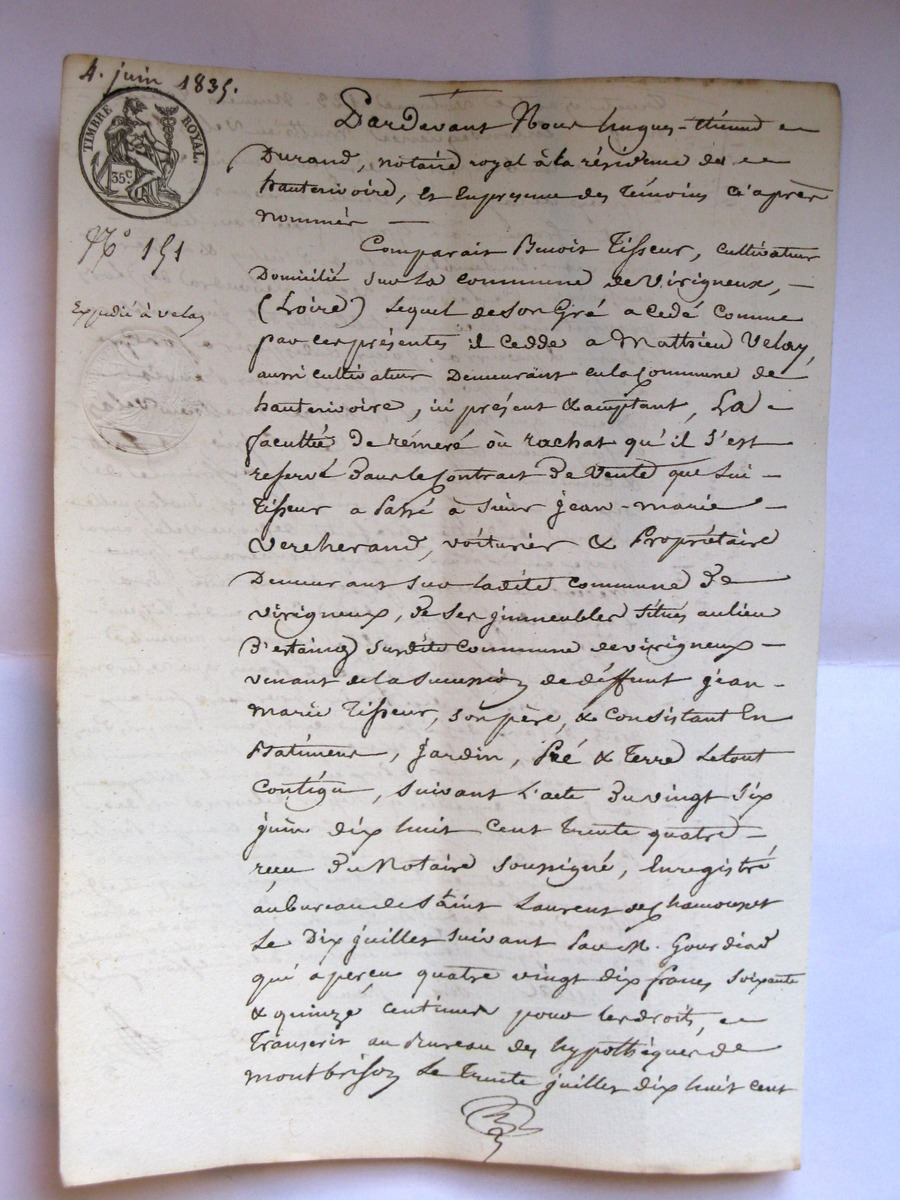 4. juin 1835.
TIMBRE ROYAL.
35c
No 151
Expédié à velay
Pardevant Nous hugues-étienne
Durand, notaire royal à la résidence de
hauterivoire, et en presence des témoins ci après
nommés —
Comparait Benoit Tisseur, cultivateur
Domicilié sur la commune de virigneux, —
(Loire) Lequel de son Gré a cedé comme
par ces présentes il cedde a Mathieu Velay,
aussi cultivateur Demeurant en la Commune de
hauterivoire, ici présent & acceptant, La —
faculté de réméré ou rachat qu'il s'est
reservé dans le Contrat de Vente que lui —
Tisseur a Passé à sieur jean-marie —
Vercherand, voiturier & Propriétaire
Demeurant sur ladite commune de
virigneux, de ses jmmeubles situés au lieu
D'estaing susdite commune de virigneux —
venant de la succession de déffunt jean-
marie Tisseur, son père, & consistant En
Batimens, jardin, Pré & terre Le tout
contigu, suivant l'acte du vingt six
juin dix huit cent trente quatre —
recu du Notaire soussigné, Enregistré
au bureau de saint Laurent de chamousset
Le Dix juillet suivant Par M. Gourdiat
qui a perçu quatre vingt dix francs soixante
& quinze centimes pour les droits, et
transcrit au Bureau des hypothèques de
montbrison Le trente juillet dix huit cent